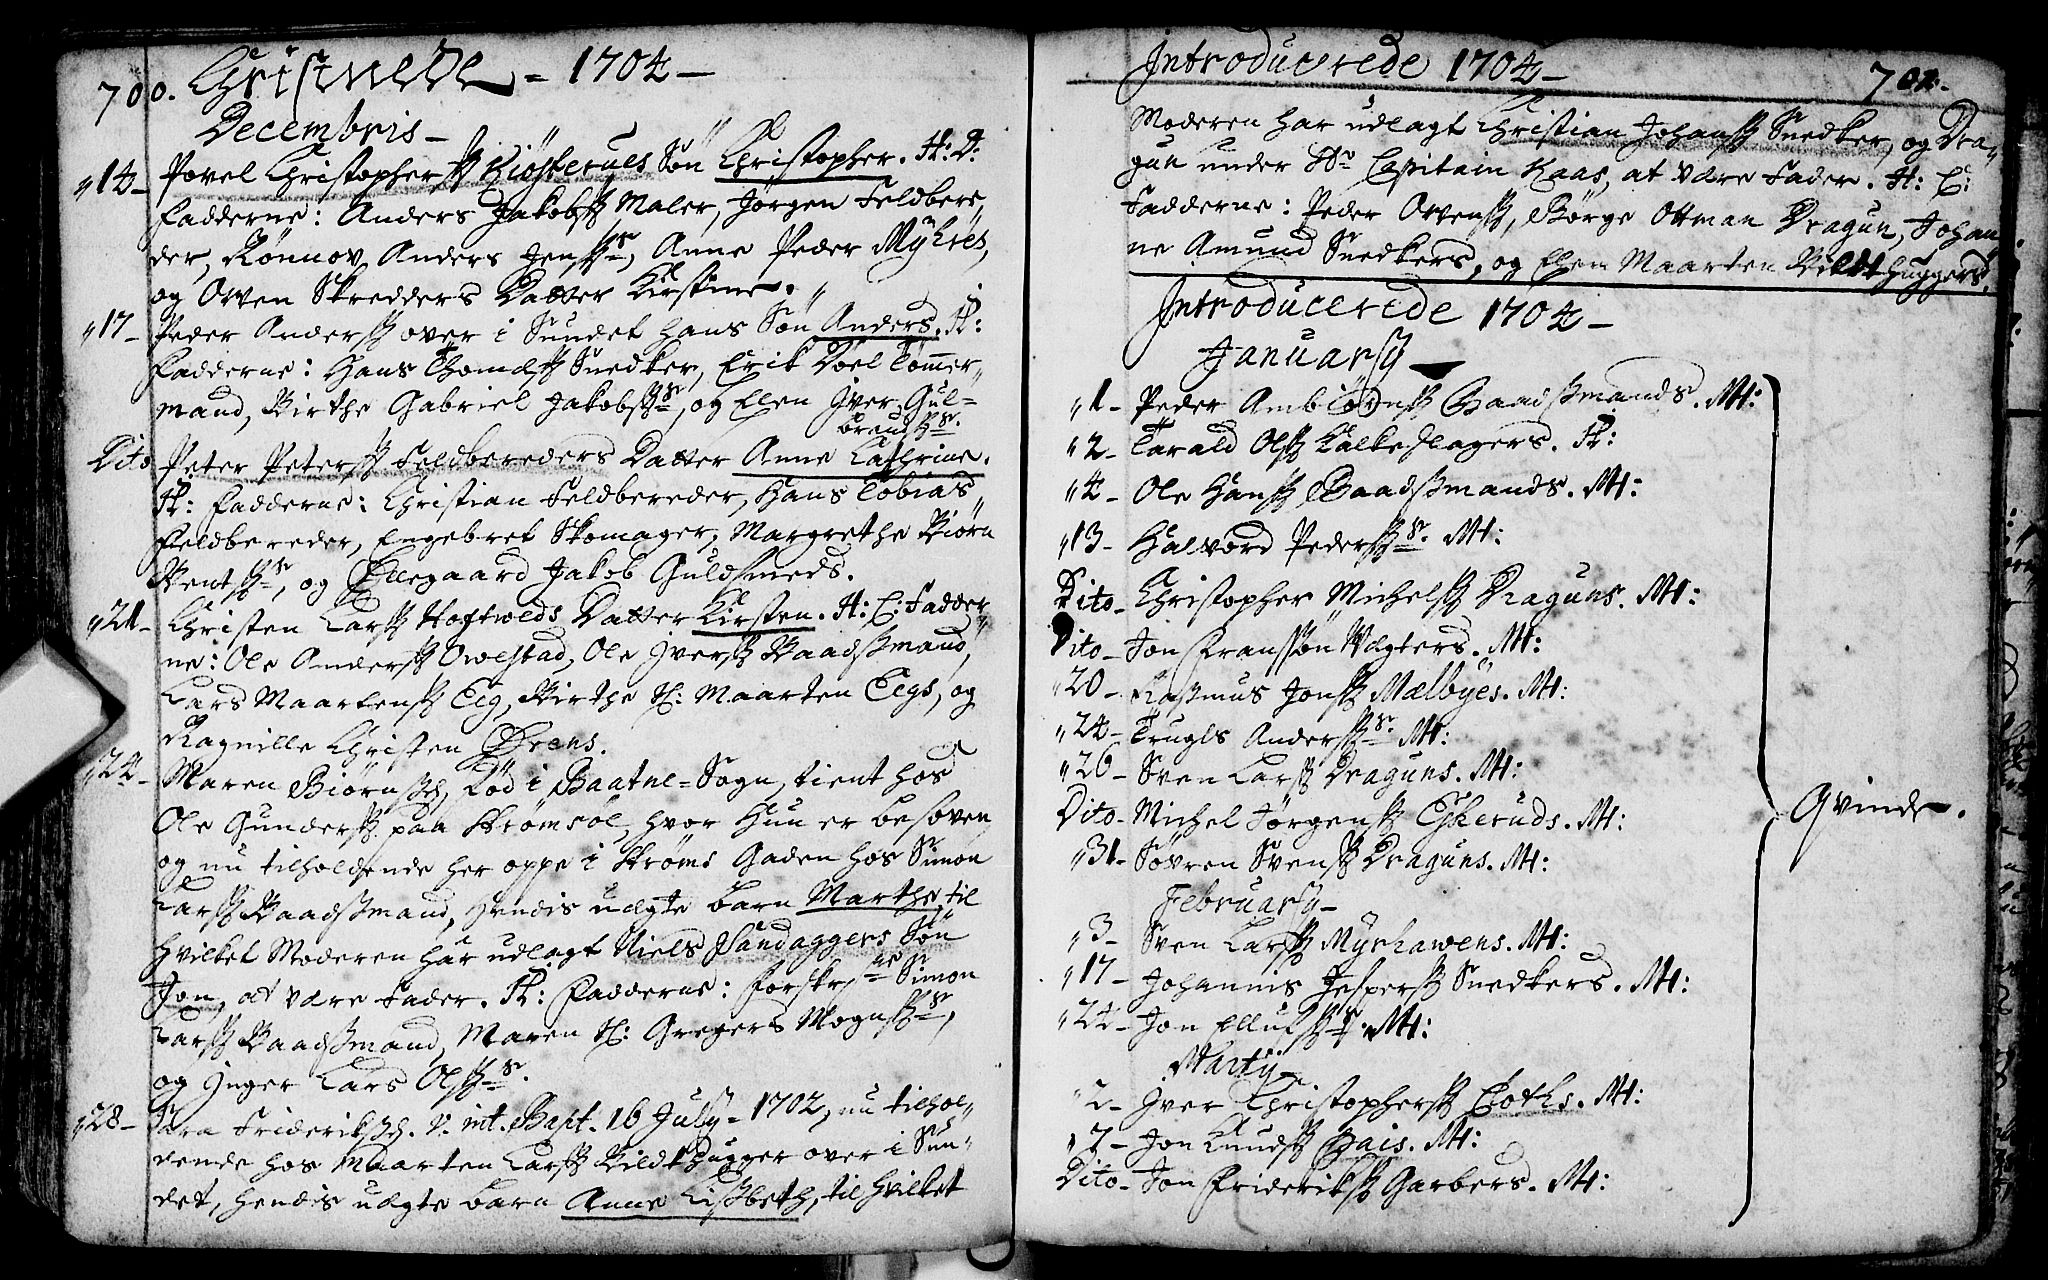 700. Christnede = 1704 –
Decembris –
"14 – Povel Christophersk Kiøsterues Søn Christopher. H: D:
Fadderne: Anders Jakobsk Maler, Jørgen Feldbere„
der, Rønnov Anders Jenssk^sr, Anne Peder Myhres,
og Owen Skredders Datter Kirstine.
"17 – Peder Andersk over i Sundet hans Søn Anders. H:
Fadderne: Hans Thomesk Snedker, Erik Doel Tømer„
mand, Birthe Gabriel Jakobsk^sr, og Ellen Iver Gul=
brendsk^sr.
Dito Peter Petersk Feldbereders Datter Anne Cathrine.
H: Fadderne: Christian Feldbereder, Hans Tobias
Feldbereder, Engebret Skomager, Margrethe Biørn
Bentsk^sr, og Ellegaard Jakob Guldsmeds.
"21 – Christen Larsk Hoftvelds Datter Kirsten. H: C: Fadder„
ne: Ole Andersk Owestad, Ole Iversk Baadßmand,
Lars Maartensk Eeg, Birthe S: Maarten Eegs, og
Ragnille Christen Ørens.
"24 – Maren Biørnßd, Fød i Baatne=Sogn, tient hos
Ole Gundersk paa Strømsøe, hvor Hun er besoven
og nu tilholdende her oppe i Strøms Gaden hos Simon
Larsk Baadßmand, Hendis uægte Barn Marthe, til
hvilket Moderen har udlagt Niels Sandaggers Søn
Jon, at være Fader. H: Fadderne: Forskr^ne Simon
Larsk Baadßmand, Maren S: Gregers Mognsk^sr,
og Inger Lars Olsk^sr.
"28 – Sara Frideriksd. v. int. Bapt. 16 July – 1702, nu tilhol„
dende hos Maarten Larsk Bildthugger over i Sun„
det, hendis uægte Barn Anne Lißbeth, til hvilket
Introducerede 1704 – 701.
Moderen har udlagt Christian Johansk Snedker, og Dra„
gun under Hr Capitain Kaas, at være Fader. H: C:
Fadderne: Peder Owensk, Børge Ottman Dragun, Johan„
ne Amund Snedkers, og Ellen Maarten Bildthuggers.
Introducerede 1704 –
January
"1 – Peder Ambiørnsk Baadßmands. M:
"2 – Tarald Olsk Kalkeslagers. H:
"4 – Ole Hansk Baadßmands. M:
"13 – Halvord Pedersk^sr. M:
Dito – Christopher Michelsk Draguns. M:
Dito – Jon Franssøn Vægters. M:
"20 – Rasmus Jonsk Mælbyes. M:
"24 – Trugls Andersk^sr. M:
"26 – Sven Larsk Draguns. M:
Dito – Michel Jørgensk Eskeruds. M:
Qvinde.
"31 – Søvren Svensk Draguns. M:
February –
"3 – Sven Larsk Myrhawens. M:
"17 – Johannis Jespersk Snedkers. M:
"24 – Jon Ellufsk^sr. M:
Martij –
"2 – Iver Christophersk Boths. M:
"7 – Jon Knudsk Hais. M:
Dito – Jon Frideriksk Garbers. M: